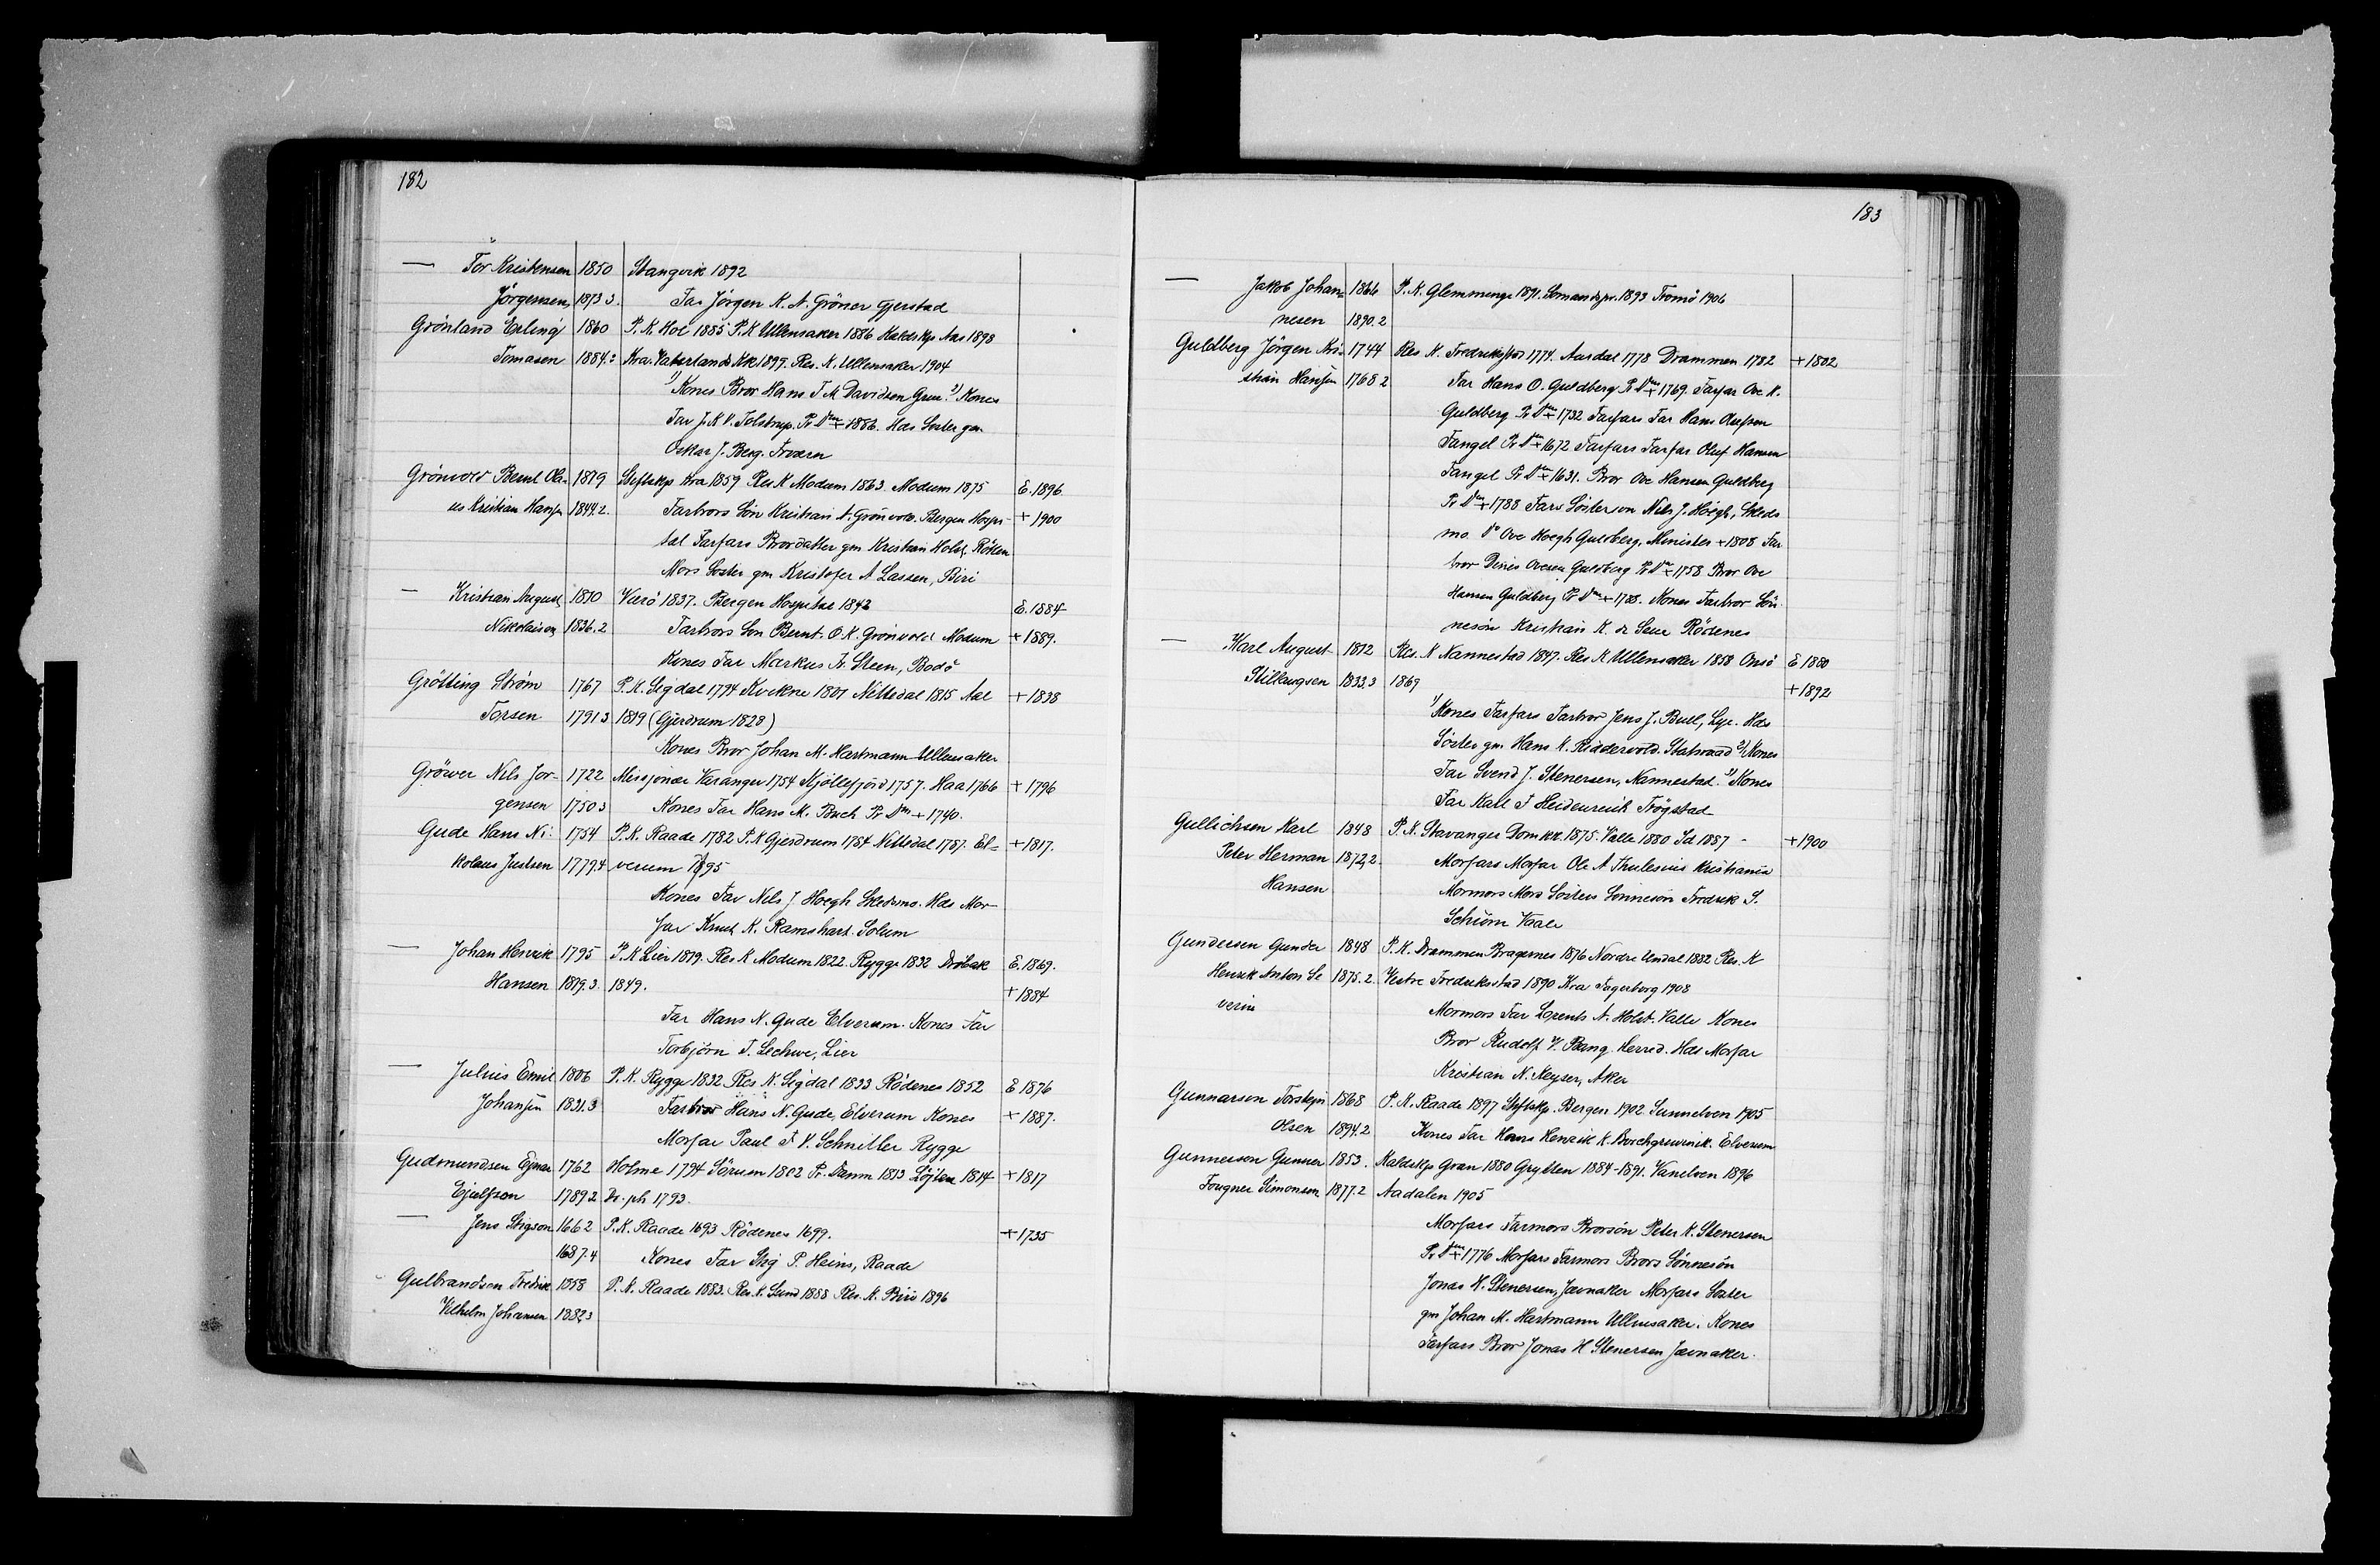 182
— Tor Kristensen 1850 Stangvik 1892
Jörgensen 1873 3. Far Jörgen K. A. Gröner Gjerstad
Grönland Erling 1860 P. K. Hol 1885 P. K Ullensaker 1886 Kaldskp Aas 1898
Tomasen 1884.2 Kra. Vaterlands Kk 1899. Res. K. Ullensaker 1904
1) Kones Bror Hans T M Davidsen Grue. 2) Kones
Far J. K V. Tolstrup. Pr. Dm + 1886. Hds Söster gm
Oskar J. Berg.
Grönvold Bernt Ola- 1819 Stiftskp Kra 1859 Res K Modum 1863. Modum 1875 E. 1896.
us Kristian Hansen 1844.2. Farbrors Sön Kristian A. Grönvold. Bergen Hospi- + 1900
tal Farfars Brordatter gm Kristian Holst, Röken
Mors Söster gm Kristofer A Lassen, Biri
— Kristian August 1810 Værö 1837. Bergen Hospital 1842 E. 1884
Nikolaison 1836.2 Farbrors Sön Bernt. O. K. Grönvold Modum + 1889.
Kones Far Markus Fr. Steen, Bodö
Grötting Ström 1767 P. K. Sigdal 1794 Kvikne 1801 Nittedal 1815 Aal + 1838
Torsen 1791 3 1819 (Gjerdrum 1828)
Kones Bror Johan M. Hartmann Ullensaker
Gröwer Nils Jör- 1722 Missjonær Varanger 1754 Kjöllefjord 1757. Haa 1766 + 1796
gensen 1750 3 Kones Far Hans M. Buch Pr Dm + 1740.
Gude Hans Ni- 1754 P. K. Raade 1782 P. K Gjerdrum 1784 Nittedal 1787. El= + 1817.
kolaus Justsen 1779.3 verum 1795
Kones Far Nils J Høegh Skedsmo. Hds Mor-
far Knut K. Ramshart. Solum
— Johan Henrik 1795 P. K Lier 1819. Res K Modum 1822. Rygge 1832 Dröbak E. 1869.
Hansen 1819.3. 1849. + 1884
Far Hans N. Gude Elverum. Kones Far
Torbjörn T. Lechve, Lier
— Julius Emil 1806 P. K. Rygge 1832 Res K. Sigdal 1833 Rödenes 1852 E 1876
Johansen 1831.3 Farbror Hans N. Gude, Elverum Kones + 1887.
Morfar Paul F. V. Schnitler Rygge
Gudmundsen Ejnar 1762 Holme 1794 Sörum 1802 Pr. Damm 1813 Löjten 1814 + 1817
Ejulfson 1789 2 Dr. ph 1793.
— Jens Stigson 1662 P. K. Raade 1693 Rödenes 1699. + 1735
1687.4 Kones Far Stig P. Heins, Raade
Gulbrandsen Fredrik 1858 P. K. Raade 1883. Res. K. Lund 1888 Res. K. Biri 1896
Vilhelm Johansen 1882 3
183
— Jakob Johan= 1866 P. K. Glemminge 1891. Sömandspr. 1893 Tromö 1906
nesen 1890.2
Guldberg Jörgen Kri= 1744 Res K. Fredrikstad 1774. Aurdal 1778 Drammen 1782 + 1802
stian Hansen 1768 2 Far Hans O. Guldberg Pr. Dm + 1769. Farfar Ove K.
Guldberg Pr Dm + 1732 Farfars Far Hans Olufsen
Fangel Pr. Dm + 1672 Farfars Farfar Oluf Hansen
Fangel Pr Dm + 1631. Bror Ove Hansen Guldberg
Pr Dm + 1788 Fars Söstersön Nils J. Höegh, Skeds
mo. Do Ove Hoegh Guldberg, Minister + 1808 Far
bror Dines Ovesen Guldberg Pr Dm + 1758 Bror Ove
Hansen Guldberg Pr Dm + 1788. Kones Farbror Sön-
nesön Kristian K. de Seue Rödenes
— Karl August 1812 Res. K Nannestad 1847. Res K Ullensaker 1858 Onsö E 1880
Stillaugsen 1833.3 1869 + 1892
1) Kones Farfars Farbror Jens J. Bull, Lye. Hds
Söster gm Hans K. Riddervold. Statsraad 2) Kones
Far Svend J. Stenersen, Nannestad. 3) Kones
Far Karl T Heidenreich Trögstad
Gullichsen Karl 1848 P. K. Stavanger Domkk. 1875. Valle 1880 Id 1887 + 1900
Peter Herman 1872,2 Morfars Morfar Ole A Thulesius Kristiania
Hansen Mormors Mors Sösters Sönnesön Fredrik S.
Schiörn Vaale
Gundersen Gunder 1848 P. K. Drammen Bragernes 1876 Nordre Undal 1882 Res. K
Henrik Anton Se 1875.2. Vestre Fredrikstad 1890 Kra Fagerborg 1908
verin Mormors Far Lorents A. Holst. Valle Kones
Bror Rudolf V. Bang. Herred. Hds Morfar
Kristian N. Keyser, Aker
Gunnarson Torstejn 1868 P. K. Raade 1897 Stiftskp. Bergen 1902. Sunnelven 1905
Olsen 1894.2 Kones Far Hans Henrik K. Borchgrevink. Elverum
Gunnerson Gunner 1853. Kaldskp Gran 1880 Grytten 1884-1891. Vanelven 1896
Fougner Simonsen 1877.2 Aadalen 1905
Morfars Farmors Brorsön Peter K. Stenersen
Pr. Dm + 1776 Morfars Farmors Brors Sönnesön
Jonas H. Stenersen, Jævnaker Morfars Söster
gm Johan M. Hartmann Ullensaker. Kones
Farfars Bror Jonas H Stenersen Jævnaker.